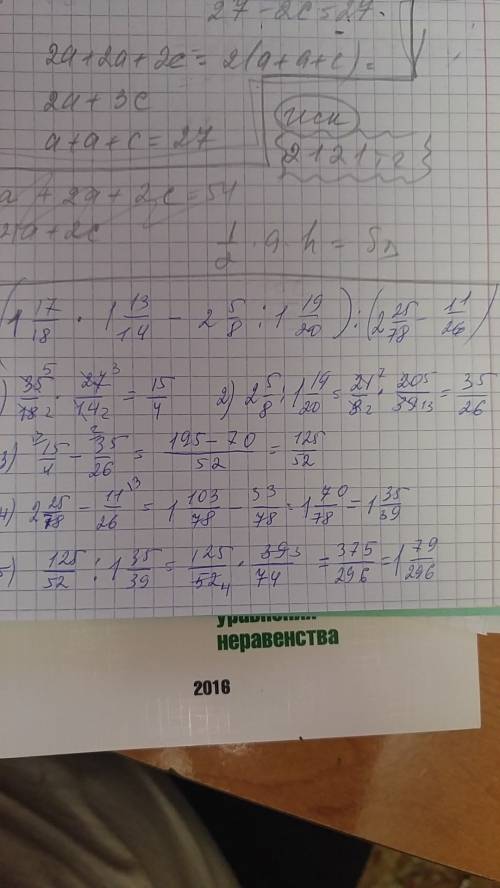 27 - 2c = 27.
2a + 2a + 2c = 2(a + a + c) =
2a + 3c
a + a + c = 27
a + 2a + 2c = 54
2a + 2c
1/2 · a · h = S△
(1 17/18 · 1 13/14 - 2 5/8 : 1 19/20) : (2 25/78 - 11/26)
) 35/18 · 27/14 = 15/4 2) 2 5/8 : 1 19/20 = 21/8 · 20/39 = 35/26
3) 15/4 - 35/26 = 195 - 70/52 = 125/52
4) 2 25/78 - 11/26 = 1 103/78 - 33/78 = 1 70/78 = 1 35/39
5) 125/52 : 1 35/39 = 125/52 · 39/74 = 375/296 = 1 79/296
уравнения
неравенства
2016